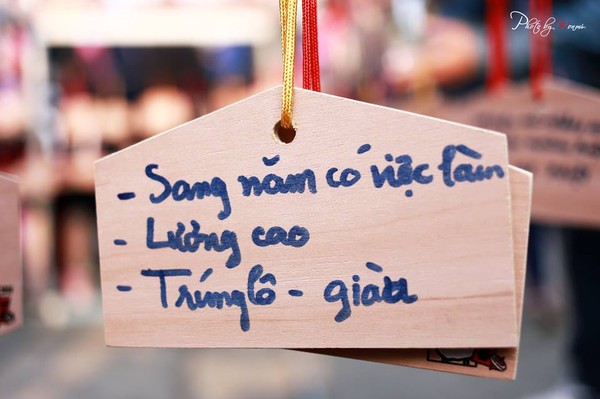 Photo by
- Sang năm có việc làm
- Lương cao
- Trúng lô - giàu